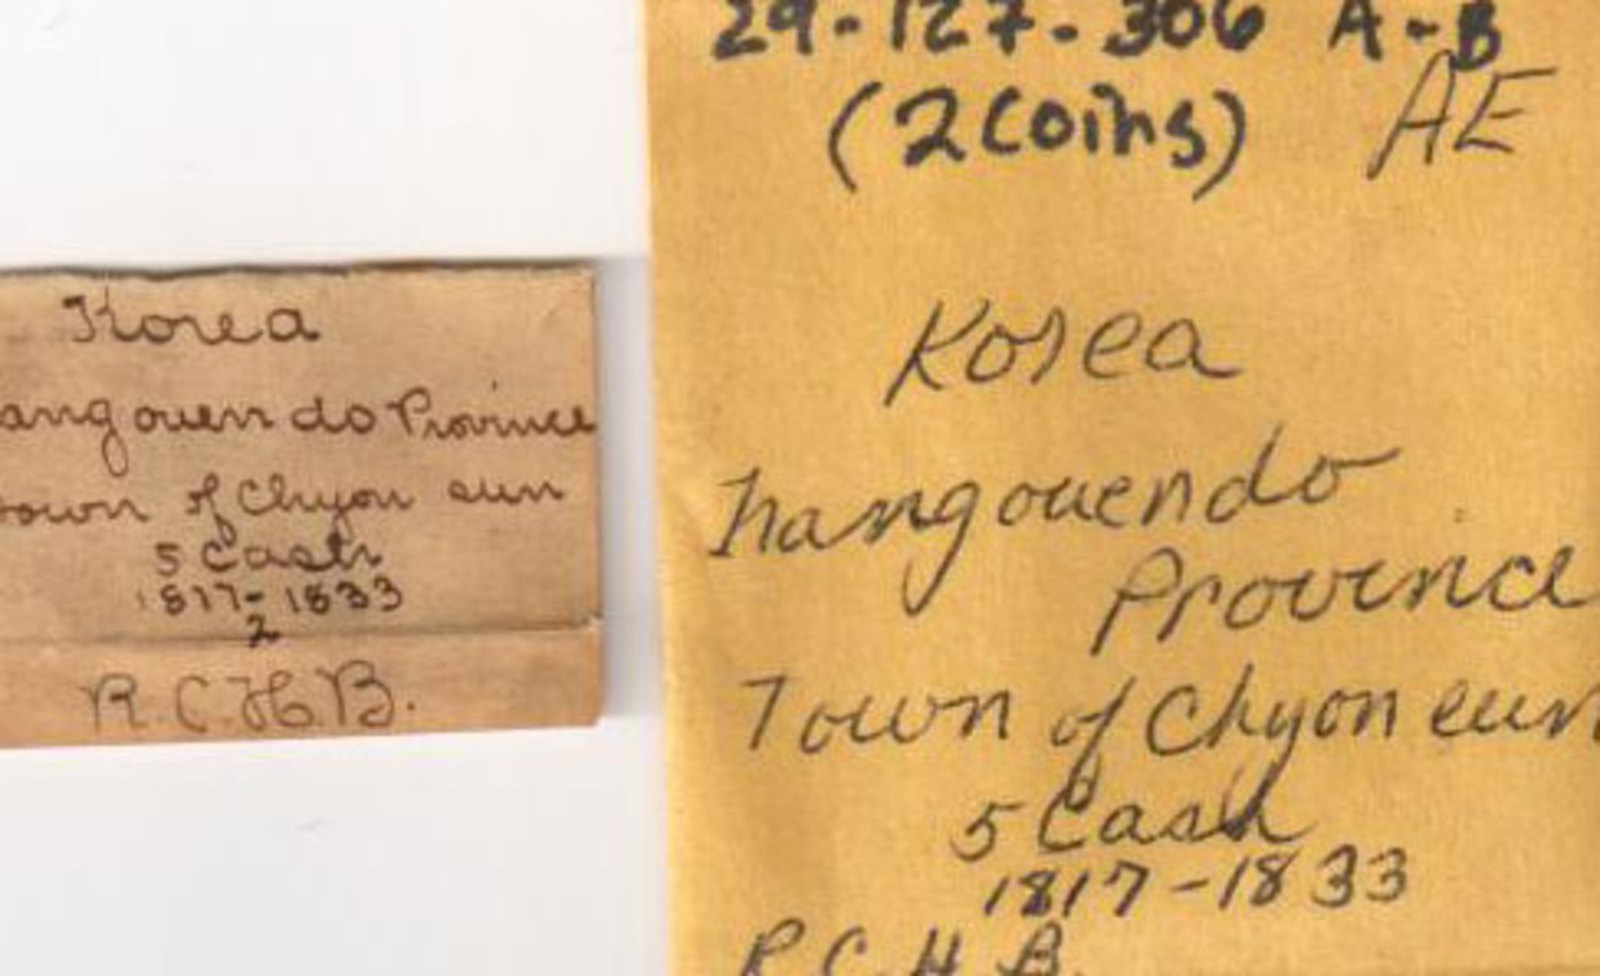 Korea
angouendo Province
town of Chyon eun
5 Cash
1817-1833
2
R.C.H.B.
29-127-306 A-B
(2 Coins) AE
Korea
hangouendo
Province
Town of Chyon eun
5 Cash
1817-1833
R.C.H.B.